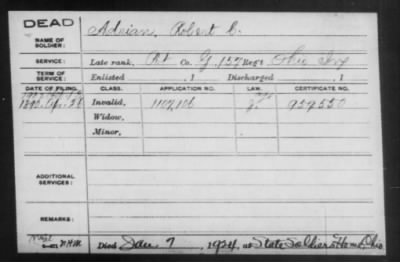 DEAD
NAME OF SOLDIER: Adrian, Robert C.
SERVICE: Late rank, Pvt Co. G, 157 Reg't Ohio Inf
TERM OF SERVICE: Enlisted , 1 Discharged , 1
DATE OF FILING. CLASS. APPLICATION NO. LAW. CERTIFICATE NO.
Invalid, 1102,106 959550
Widow,
Minor,
ADDITIONAL SERVICES:
REMARKS:
Died Jan 7, 1924, at State Soldiers Home, Ohio